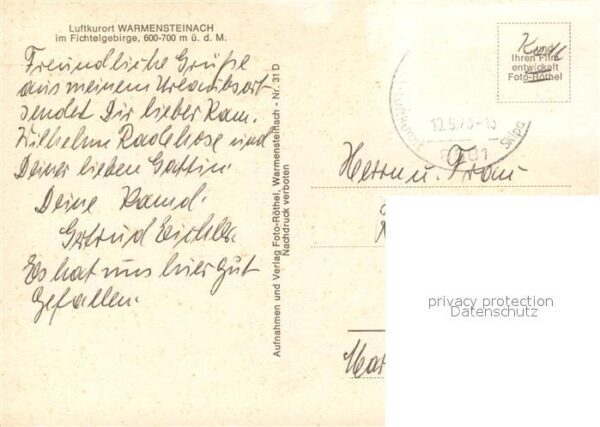 Luftkurort WARMENSTEINACH
im Fichtelgebirge, 600-700 m ü. d. M.
Freundliche Grüße
aus meinem Urlaubsort
sendet Dir lieber Kam.
Wilhelm und
Deiner lieben Gattin.
Deine Kamd.
Gertrud Eichler.
Es hat uns hier gut
gefallen.
Aufnahmen und Verlag Foto-Röthel, Warmensteinach - Nr. 31 D
Nachdruck verboten
und
Ihren Film
entwickelt
Foto-Röthel
Skipa
Herrn u. Frau
Mar
privacy protection
Datenschutz